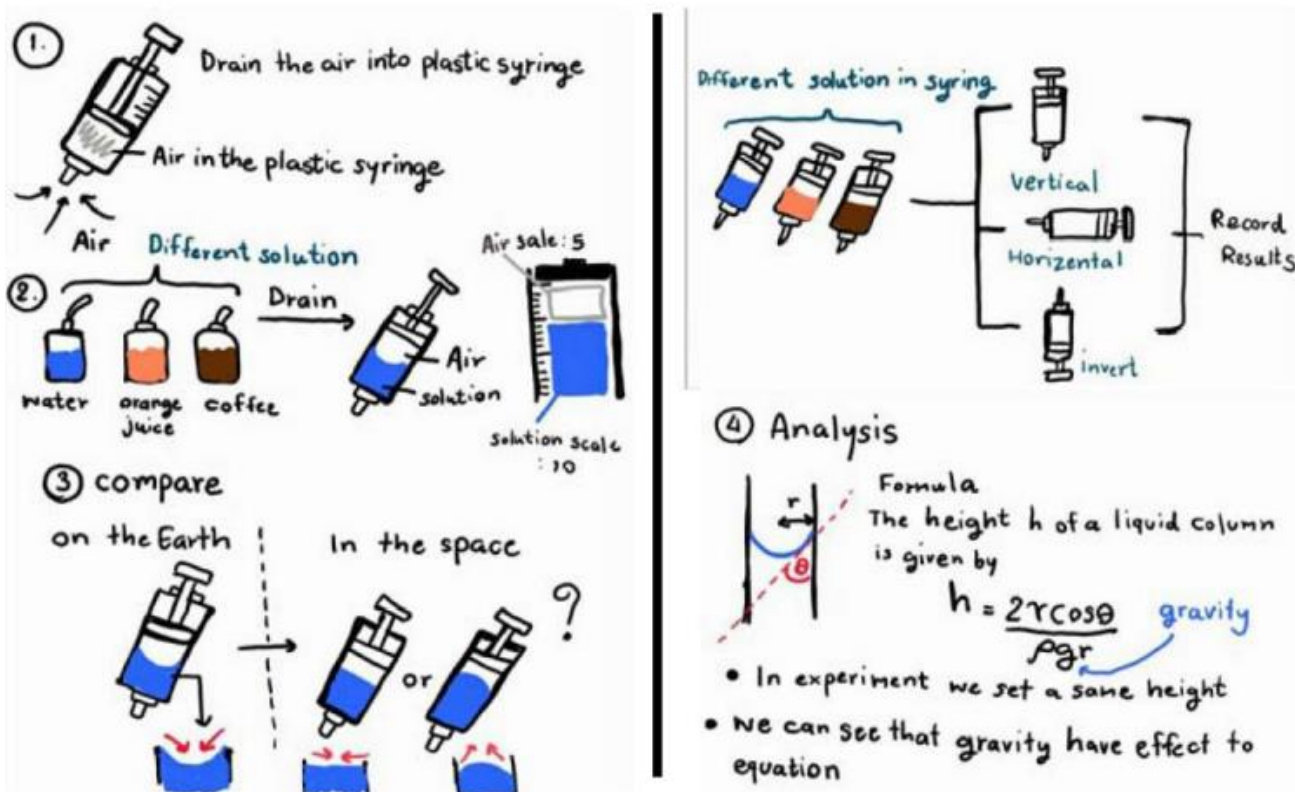 1.
Drain the air into plastic syringe
Air in the plastic syringe
Air
2.
Different solution
water
orange
juice
coffee
Drain
Air
solution
Air sale: 5
solution scale
: 10
3 compare
on the Earth
In the space
or
?
Different solution in syring
Vertical
Horizental
invert
Record
Results
4 Analysis
r
θ
Formula
The height h of a liquid column
is given by
h = 2rcosθ
ρgr
gravity
• In experiment we set a same height
• We can see that gravity have effect to
equation